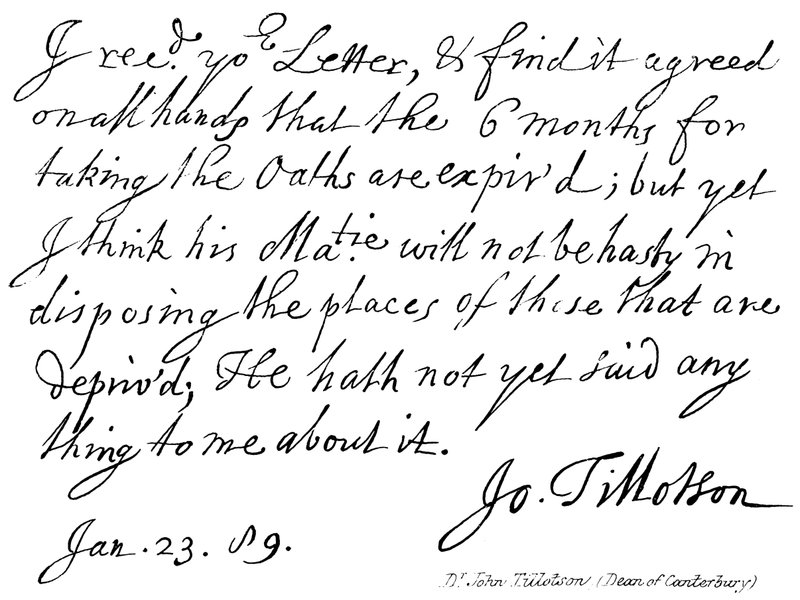 I rec.d yor Letter, & find it agreed
on all hands that the 6 months for
taking the Oaths are expir'd; but yet
I think his Ma.tie will not be hasty in
disposing the places of those that are
depriv'd; He hath not yet said any
thing to me about it.
Jo. Tillotson
Jan. 23. 89.
Dr John Tillotson (Dean of Canterbury)